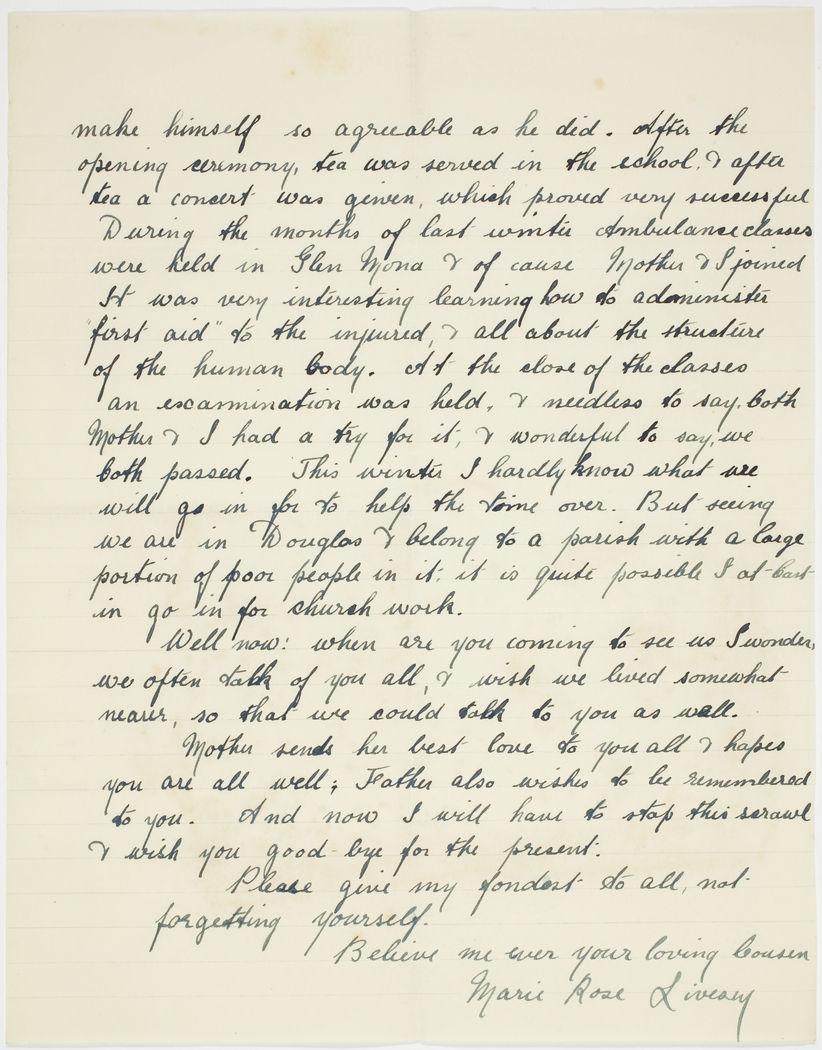 make himself so agreeable as he did. After the
opening ceremony, tea was served in the school, & after
tea a concert was given, which proved very successful
During the months of last winter Ambulance classes
were held in Glen Mona & of cause Mother & I joined
It was very interesting learning how to administer
"first aid" to the injured, & all about the structure
of the human body. At the close of the classes
an escarmination was held, & needless to say, both
Mother & I had a try for it; & wonderful to say, we
both passed. This winter I hardly know what we
will go in for to help the time over. But seeing
we are in Douglas & belong to a parish with a large
portion of poor people in it; it is quite possible I at-last
in go in for church work.
Well now! when are you coming to see us I wonder,
we often talk of you all, & wish we lived somewhat
nearer, so that we could talk to you as well.
Mother sends her best love to you all & hopes
you are all well; Father also wishes to be remembered
to you. And now I will have to stop this scrawl
& wish you good-bye for the present.
Please give my fondest to all, not
forgetting yourself.
Believe me ever your loving Cousen
Marie Rose Livesey